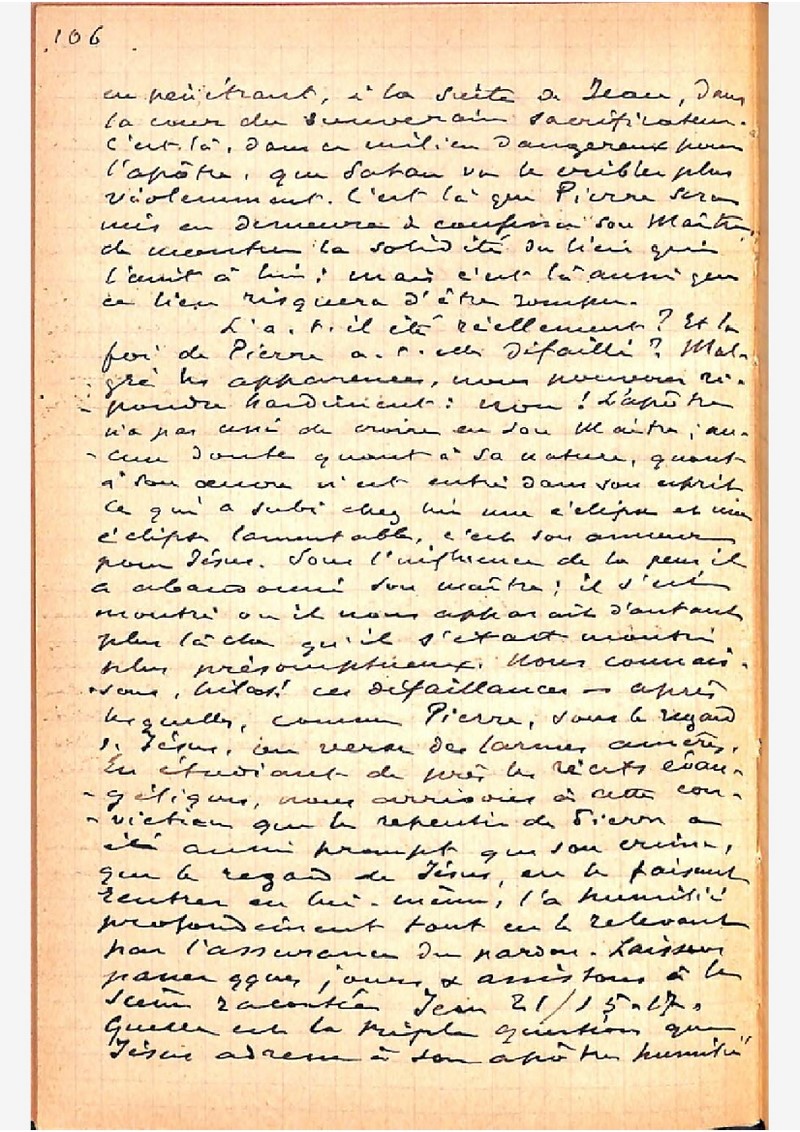 106
en pénétrant, à la suite de Jean, dans
la cour du souverain sacrificateur.
C'est là, dans ce milieu dangereux pour
l'apôtre, que Satan va le cribler plus
violemment. C'est là que Pierre sera
mis en demeure de confesser son Maître,
de montrer la solidité du lien qui
l'unit à lui ; mais c'est là aussi que
ce lien risquera d'être rompu.
L'a-t-il été réellement ? Et la
foi de Pierre a-t-elle défailli ? Mal-
gré les apparences, nous pouvons ré-
-pondre hardiment : non ! L'apôtre
n'a pas cessé de croire en son Maître ; au-
-cun doute quant à sa nature, quant
à son œuvre n'est entré dans son esprit
Ce qui a subi chez lui une éclipse et une
éclipse lamentable, c'est son amour
pour Jésus. Sous l'influence de la peur il
a abandonné son maître ; il s'est
montré ou il nous apparaît d'autant
plus lâche qu'il s'était montré
plus présomptueux. Nous connais-
-sons, hélas ! ces défaillances — après
lesquelles, comme Pierre, sous le regard
de Jésus, on verse des larmes amères.
En étudiant de près les récits évan-
-géliques, nous arrivons à cette con-
-viction que le repentir de Pierre a
été aussi prompt que son crime,
que le regard de Jésus, en le faisant
rentrer en lui-même, l'a humilié
profondément tout en le relevant
par l'assurance du pardon. Laissons
passer qques jours & assistons à la
scène racontée Jean 21/15-17.
Quelle est la triple question que
Jésus adresse à son apôtre humilié